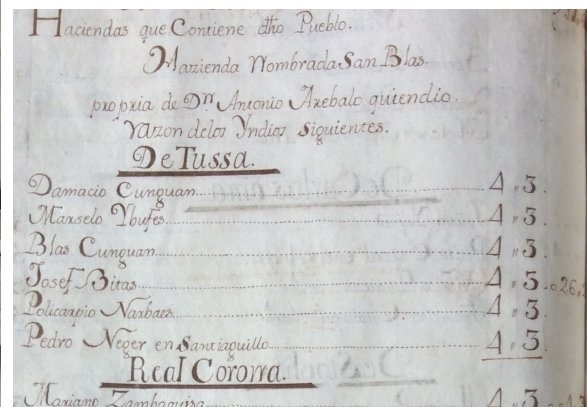 Haciendas que Contiene dho Pueblo.
Hazienda Nombrada San Blas.
propria de Dn. Antonio Arebalo quien dio
razon delos Yndios siguientes.
De Tussa.
Damacio Cunguan 4 " 3.
Marselo Ybufes 4 " 3.
Blas Cunguan 4 " 3.
Josef Bitas 4 " 3.
Policarpio Narbaes 4 " 3.
Pedro Neger en Santiaguillo 4 " 3.
Real Corona.
Mariano 4 " 3